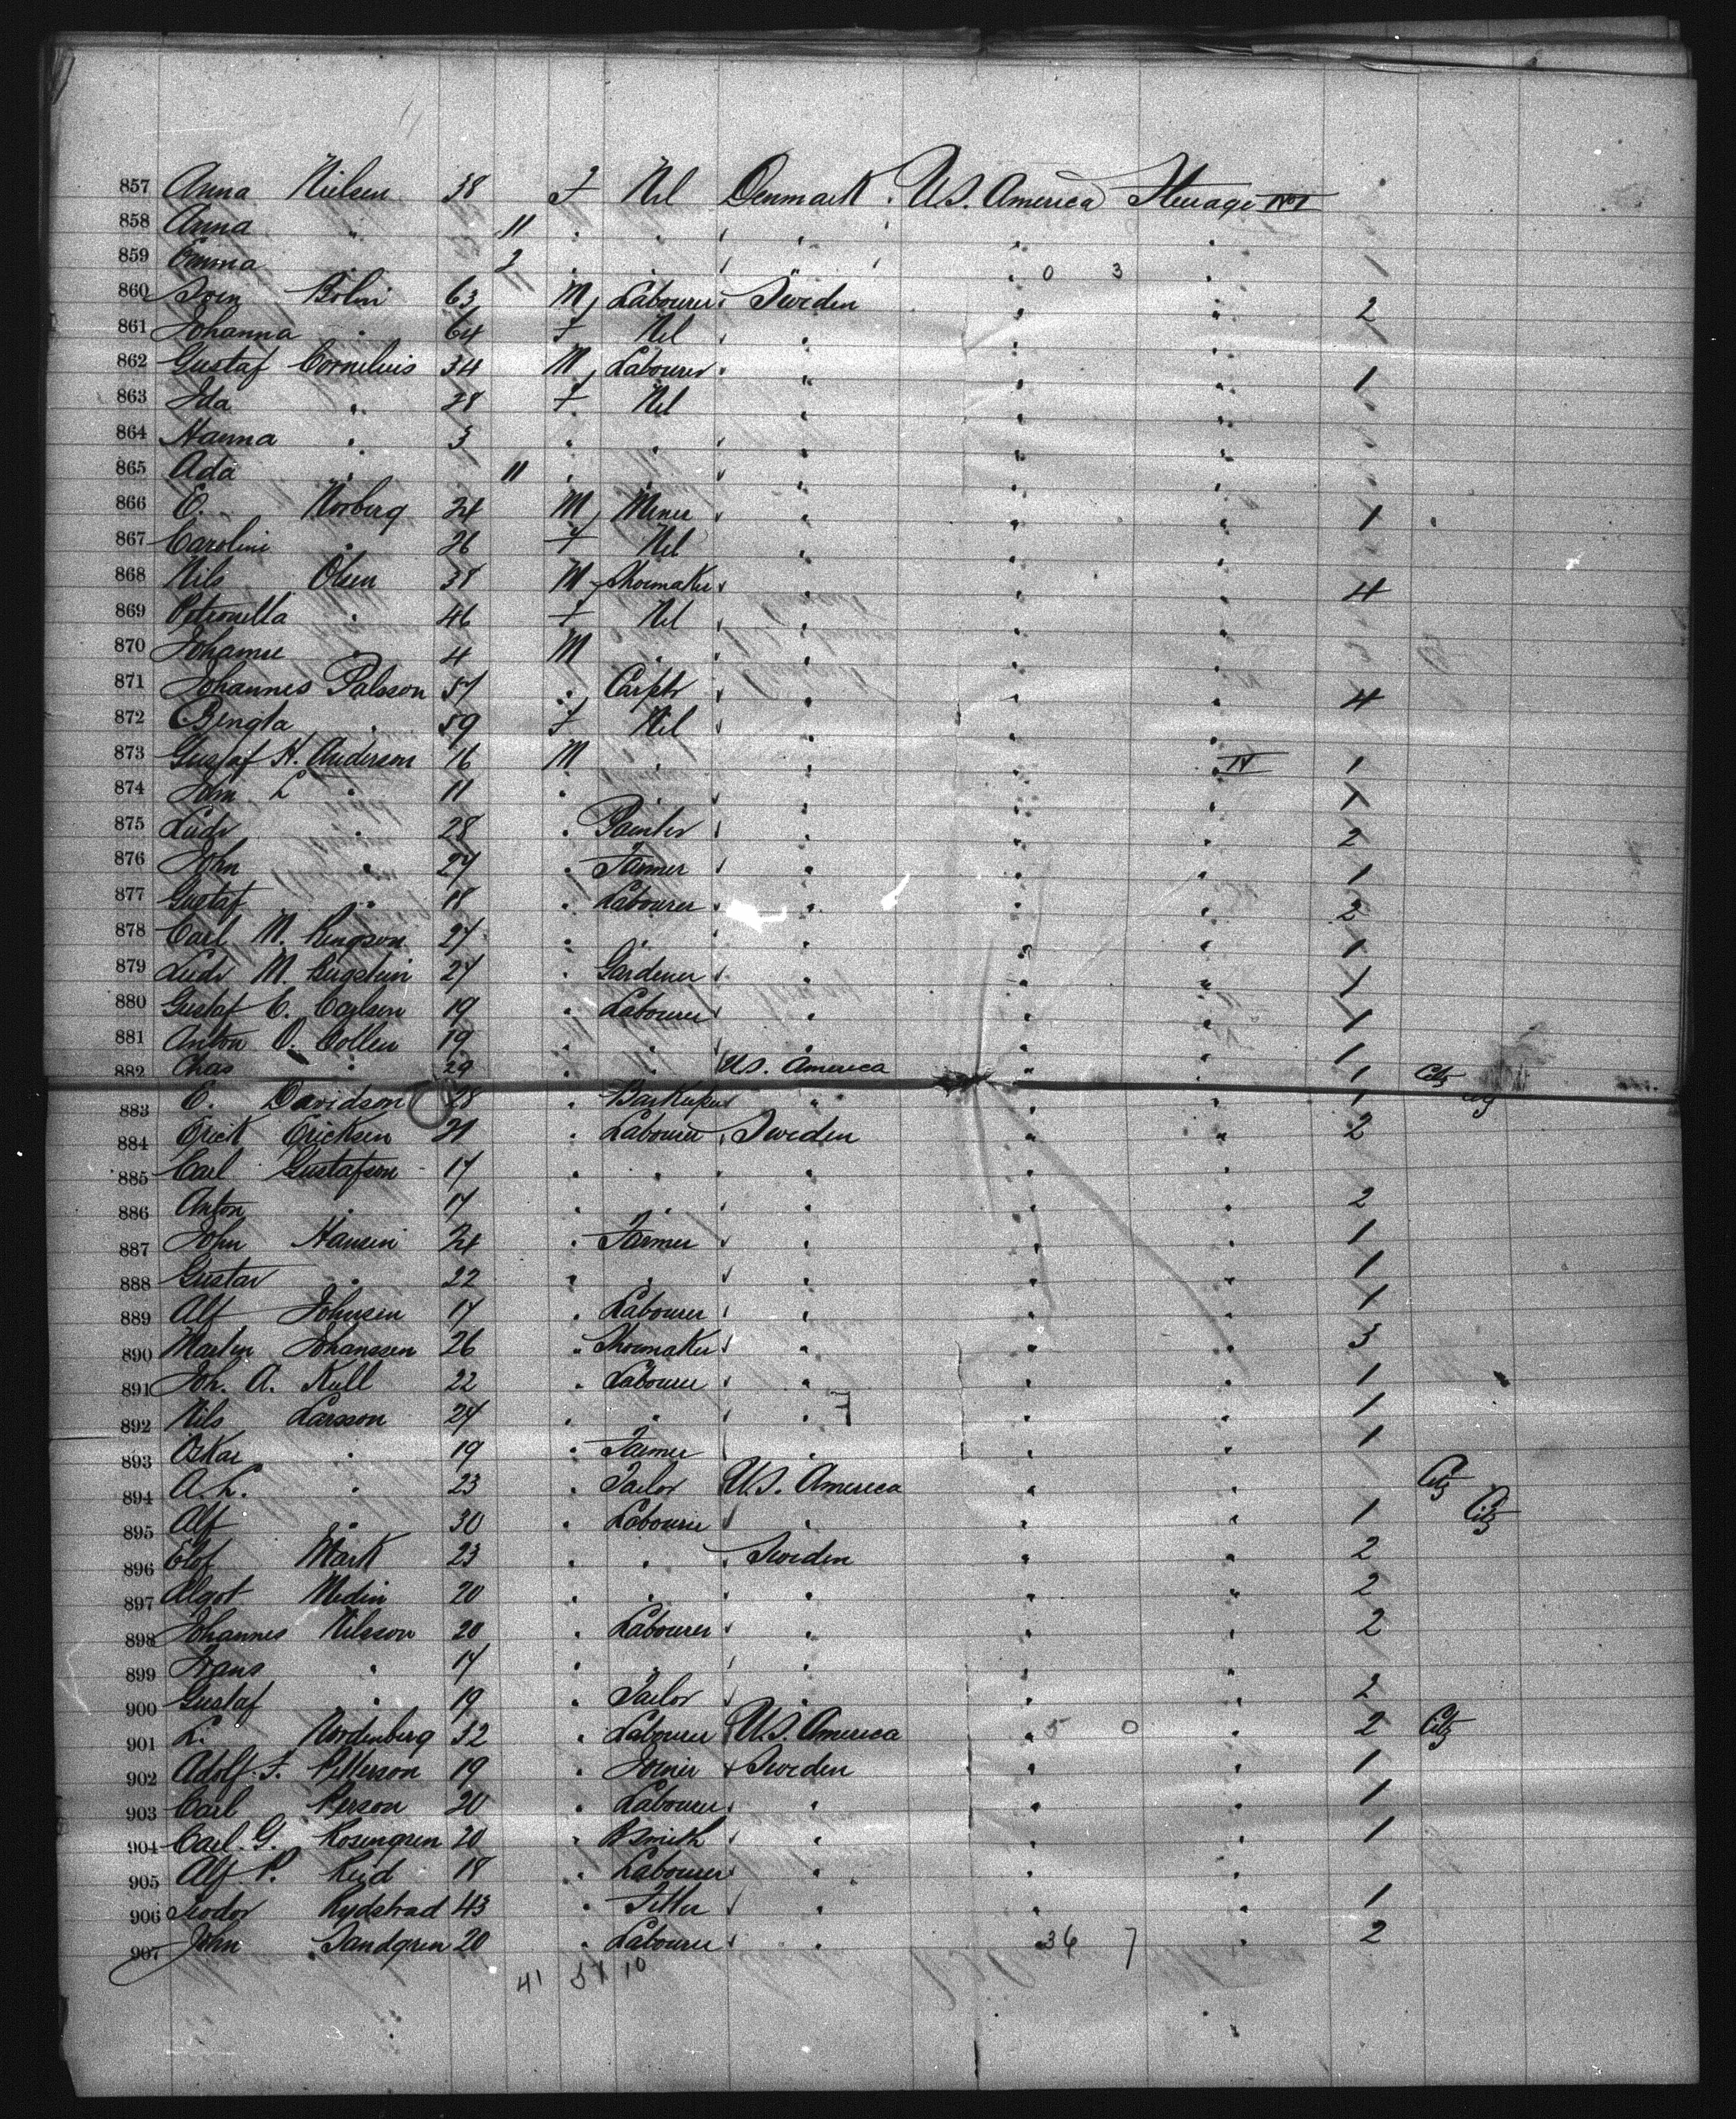 857 Anna Nielsen 38 f Nil Denmark . U.S. America Steerage No 1
858 Anna " 11 " " " " "
859 Emma 2 " " " 0 3 " 1
860 Sven Bolin 63 M, Labourer Sweden " " 2
861 Johanna " 64 f Nil " " "
862 Gustaf Cornelius 34 M, Labourer " " " 1
863 Ida " 28 f Nil " " "
864 Hanna " 3 " " " " "
865 Ada " 11 " " " " "
866 E. Norberg 24 M, Miner " " " 1
867 Carolini " 26 f Nil " " "
868 Nils Olsen 38 M Shoemaker " " " 4
869 Petronella " 46 f Nil " " "
870 Johanne " 4 M " " " "
871 Johannes Palsson 57 " Carptr " " " 4
872 Bengta " 59 f Nil " " "
873 Gustaf H. Anderson 16 M " " " " IV 1
874 John L " 11 " " " " " 1
875 Ludv " 28 " Painter " " " 2
876 John " 27 " Farmer " " " 1
877 Gustaf " 18 " Labourer " " " 2
878 Carl M. 27 " " " " " 1
879 Ludv M. 27 " Gardener " " " 1
880 Gustaf C. Carlson 19 " Labourer " " " 1
881 Anton O. Collen 19 " " " " " 1
882 Chas " 29 " " U.S. America " " 1 Citz
883 E. Davidson 28 " Barkeeper " " " 1
884 Erick Ericksen 21 " Labourer Sweden " " 2
885 Carl Gustafson 17 " " " " "
886 Anton " 17 " " " " " 2
887 John Hansen 24 " Farmer " " " 1
888 Gustav " 22 " " " " " 1
889 Alf Johnsen 17 " Labourer " " " 1
890 Martin Johanssen 26 " Shoemaker " " " 3
891 Joh. A. Kull 22 " Labourer " " " 1
892 Nils Larsson 24 " " " 7 " " 1
893 Oskar " 19 " Farmer " " " 1
894 A. L. " 23 " Tailor U.S. America " " Citz
895 Alf " 30 " Labourer " " " 1 Citz
896 Elof Mark 23 " " Sweden " " 2
897 Algot Medin 20 " " " " " 2
898 Johannes Nilsson 20 " Labourer " " " 2
899 Frans " 17 " " " " "
900 Gustaf " 19 " Tailor " " " 2
901 L. Nordenberg 32 " Labourer U.S. America " 5 0 " 2 Citz
902 Adolf F. Petterson 19 " Joiner Sweden " " 1
903 Carl Person 20 " Labourer " " " 1
904 Carl G. Rosengren 20 " B smith " " " 1
905 Alf P. Reid 18 " Labourer " " "
906 Teodor Rydstrad 43 " Fitter " " " 1
907 John Sandgren 20 Labourer " 36 7 " 2
41 51 10